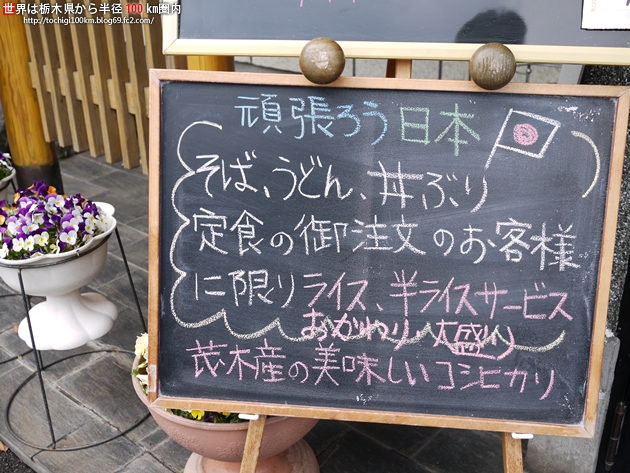 世界は栃木県から半径 100 km圏内
http://tochigi100km.blog69.fc2.com/
頑張ろう日本
そば、うどん、丼ぶり
定食の御注文のお客様
に限りライス、半ライスサービス
おかわり 大盛り
茂木産の美味しいコシヒカリ